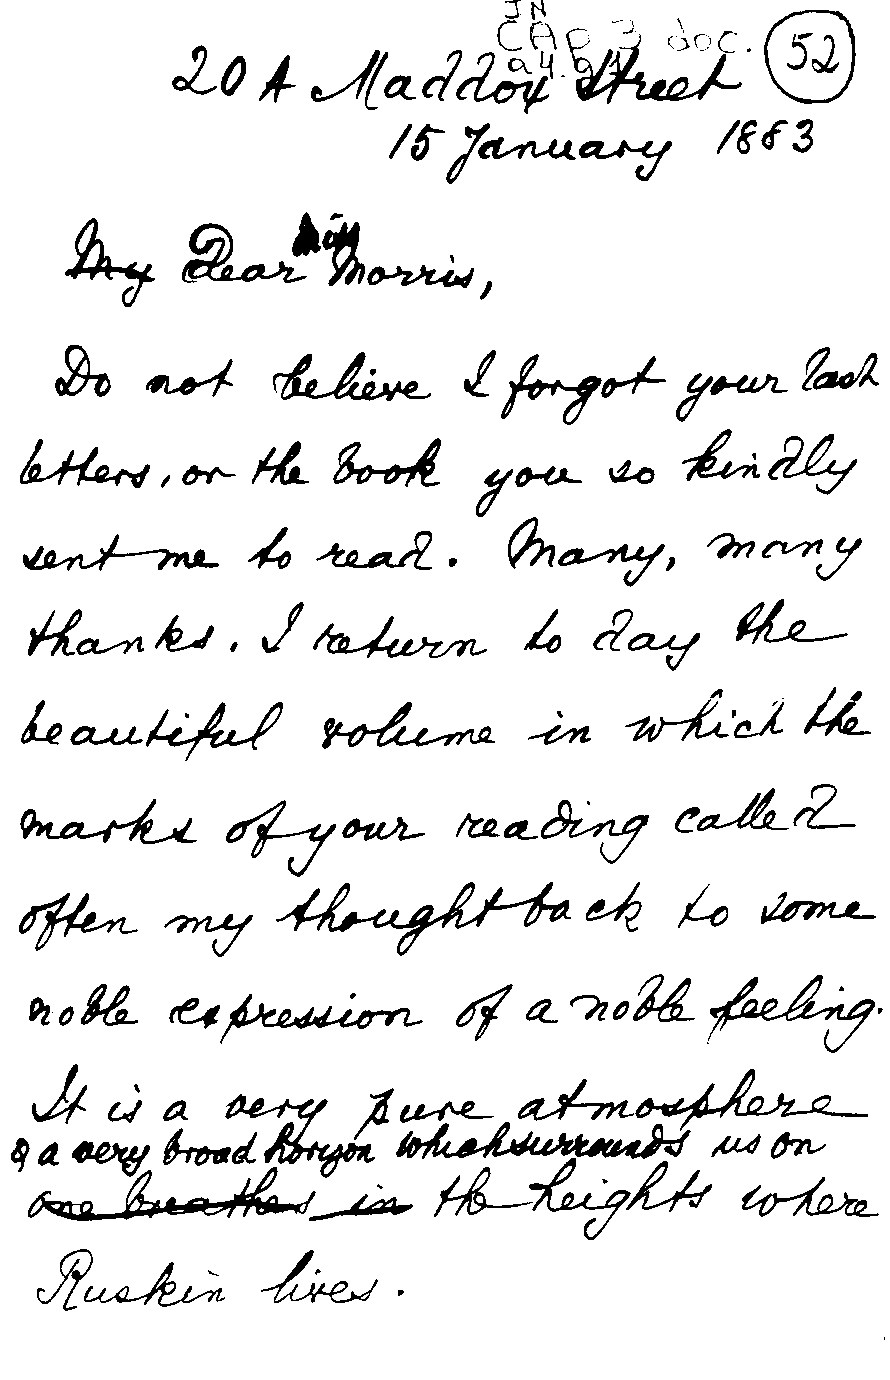 CAp 3 doc.
52
20 A Maddox Street
15 January 1883
My Dear Miss Morris,
Do not believe I forgot your last
letters, or the book you so kindly
sent me to read. Many, many
thanks. I return to day the
beautiful volume in which the
marks of your reading called
often my thought back to some
noble expression of a noble feeling.
It is a very pure atmosphere
& a very broad horizon which surrounds us on
one breathes in the heights where
Ruskin lives.